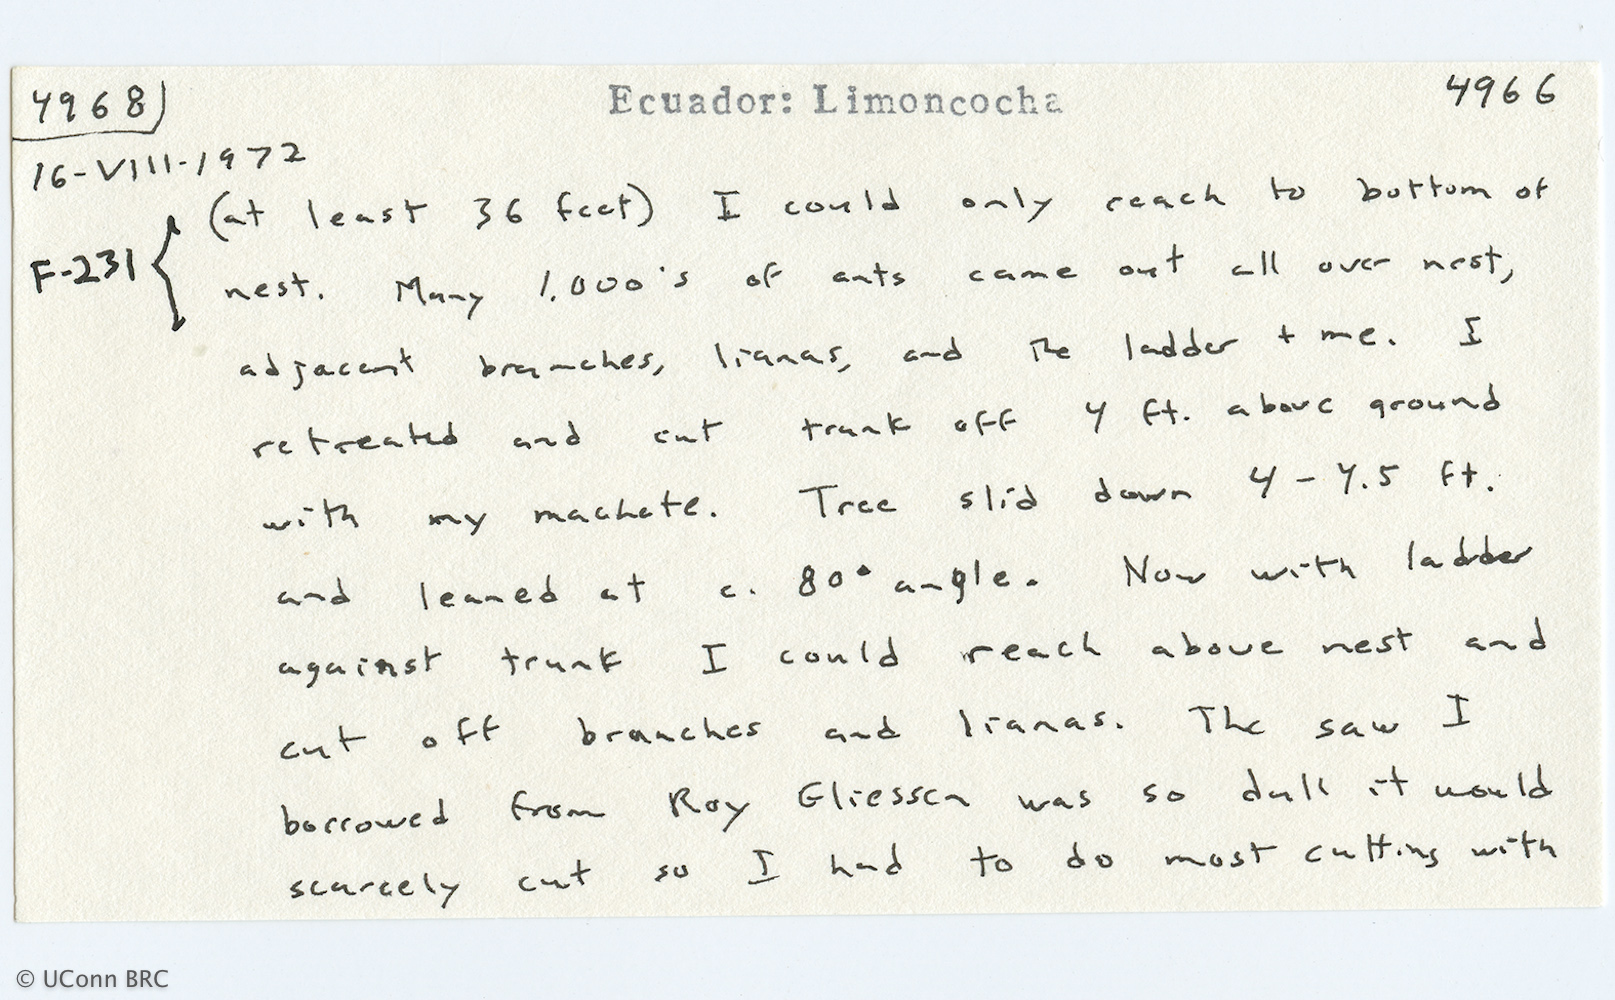 4968 Ecuador: Limoncocha 4966
16-VIII-1972
(at least 36 feet) I could only reach to bottom of
F-231
nest. Many 1,000's of ants came out all over nest,
adjacent branches, lianas, and the ladder + me. I
retreated and cut trunk off 4 ft. above ground
with my machete. Tree slid down 4-4.5 ft.
and leaned at c. 80° angle. Now with ladder
against trunk I could reach above nest and
cut off branches and lianas. The saw I
borrowed from Roy Gliessen was so dull it would
scarcely cut so I had to do most cutting with
© UConn BRC